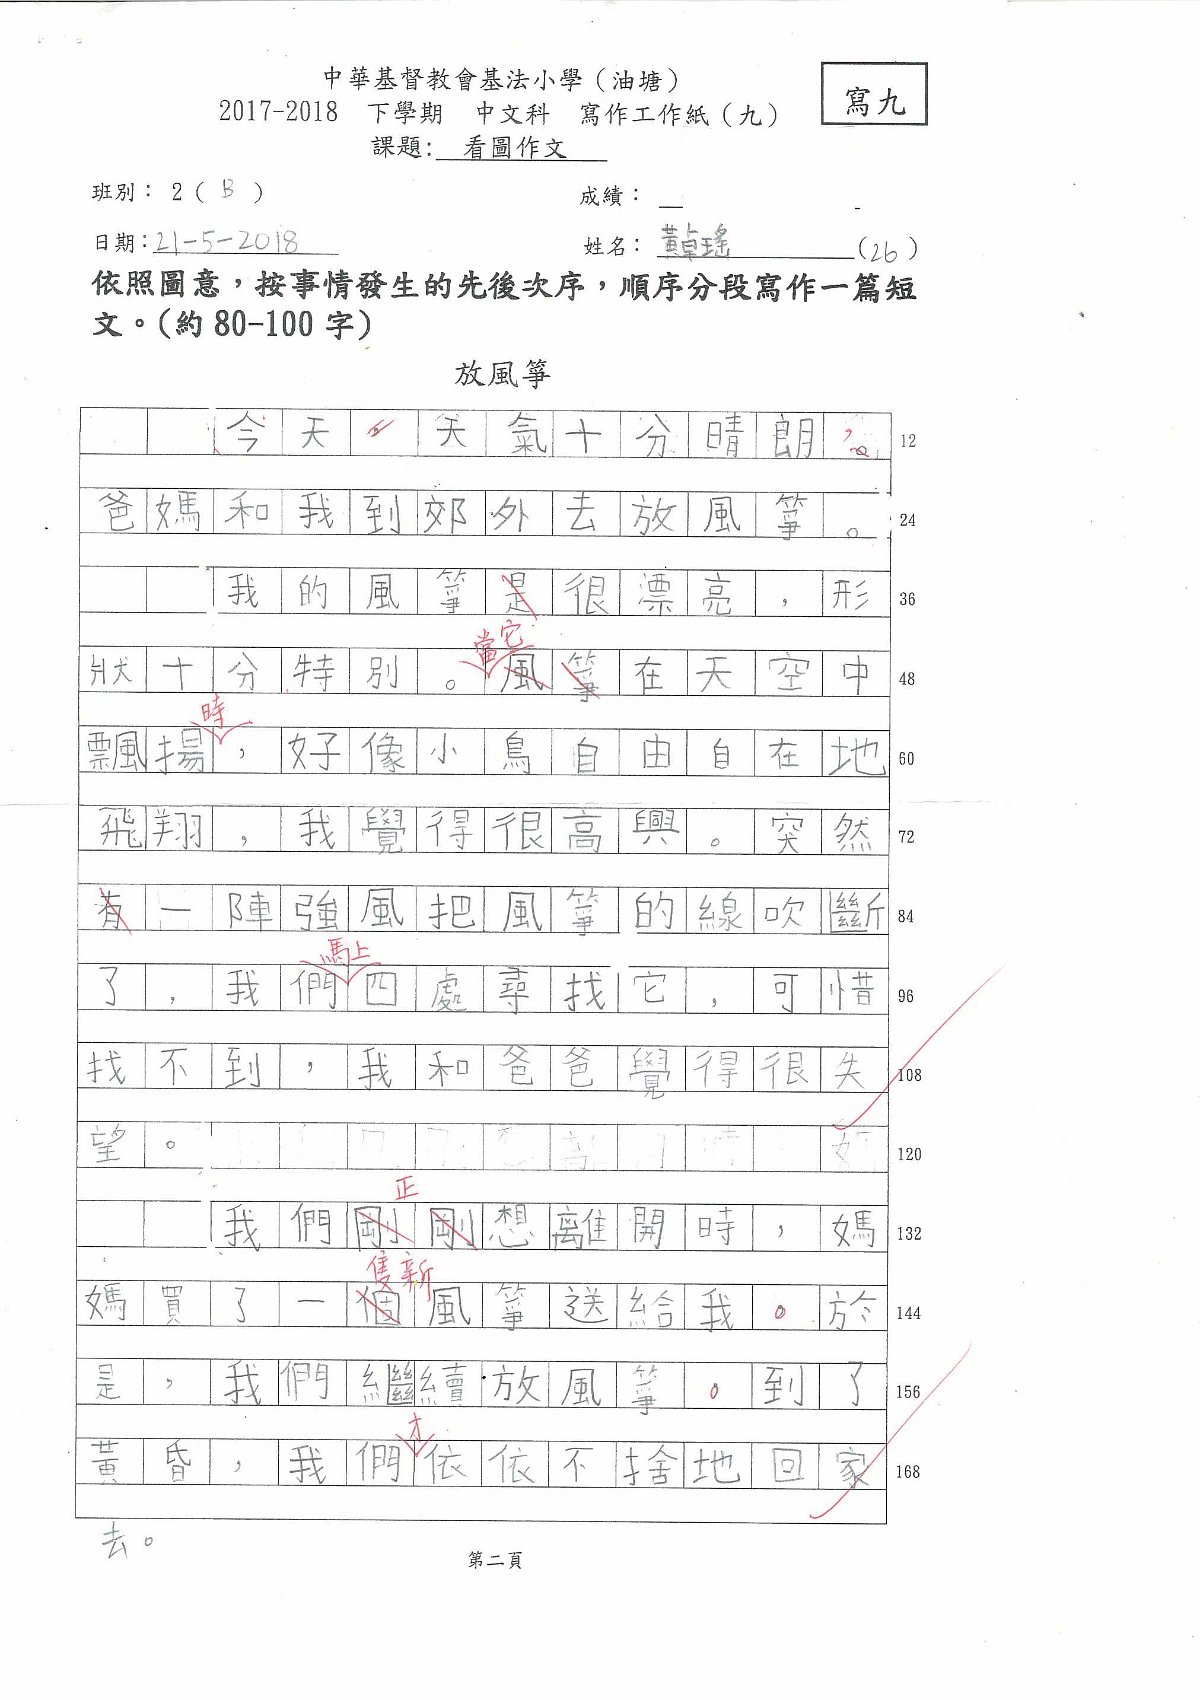 中華基督教會基法小學（油塘）
2017-2018 下學期 中文科 寫作工作紙（九）
寫九
課題: 看圖作文
班別： 2 ( B )
成績：
日期：21-5-2018
姓名： 黃卓瑤 (26)
依照圖意，按事情發生的先後次序，順序分段寫作一篇短
文。(約 80-100 字)
放風箏
今天 天氣十分晴朗， 12
爸媽和我到郊外去放風箏。 24
我的風箏是很漂亮，形 36
當它
狀十分特別。風箏在天空中 48
時
飄揚，好像小鳥自由自在地 60
飛翔，我覺得很高興。突然 72
有一陣強風把風箏的線吹斷 84
馬上
了，我們四處尋找它，可惜 96
找不到，我和爸爸覺得很失 108
望。 120
正
我們剛剛想離開時，媽 132
隻新
媽買了一個風箏送給我。於 144
是，我們繼續放風箏。到了 156
才
黃昏，我們依依不捨地回家 168
去。
第二頁